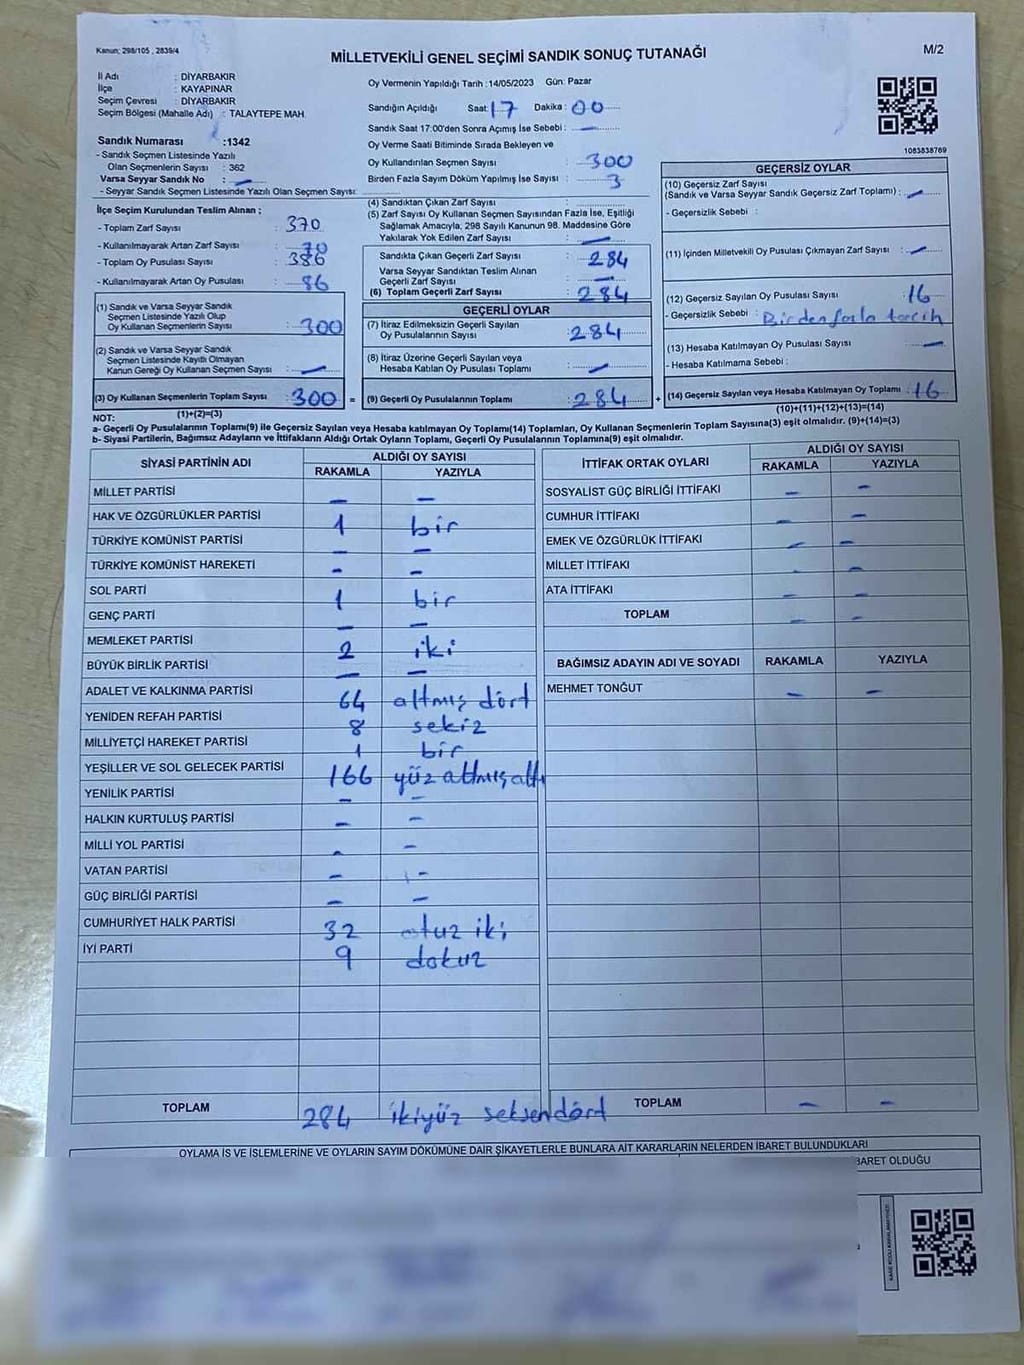 Kanun; 298/105 , 2839/4
MİLLETVEKİLİ GENEL SEÇİMİ SANDIK SONUÇ TUTANAĞI
M/2
İl Adı : DİYARBAKIR
İlçe : KAYAPINAR
Seçim Çevresi : DİYARBAKIR
Seçim Bölgesi (Mahalle Adı) : TALAYTEPE MAH.
Sandık Numarası :1342
- Sandık Seçmen Listesinde Yazılı
Olan Seçmenlerin Sayısı : 362
Varsa Seyyar Sandık No : —
- Seyyar Sandık Seçmen Listesinde Yazılı Olan Seçmen Sayısı:
Oy Vermenin Yapıldığı Tarih :14/05/2023 Gün: Pazar
Sandığın Açıldığı Saat: 17 Dakika : 00
Sandık Saat 17:00'den Sonra Açımış İse Sebebi : —
Oy Verme Saati Bitiminde Sırada Bekleyen ve
Oy Kullandırılan Seçmen Sayısı : 300
Birden Fazla Sayım Döküm Yapılmış İse Sayısı : 3
1083838769
İlçe Seçim Kurulundan Teslim Alınan ;
- Toplam Zarf Sayısı : 370
- Kullanılmayarak Artan Zarf Sayısı : 70
- Toplam Oy Pusulası Sayısı : 386
- Kullanılmayarak Artan Oy Pusulası : 86
(1) Sandık ve Varsa Seyyar Sandık
Seçmen Listesinde Yazılı Olup
Oy Kullanan Seçmenlerin Sayısı : 300
(2) Sandık ve Varsa Seyyar Sandık
Seçmen Listesinde Kayıtlı Olmayan
Kanun Gereği Oy Kullanan Seçmen Sayısı : —
(3) Oy Kullanan Seçmenlerin Toplam Sayısı : 300 =
(4) Sandıktan Çıkan Zarf Sayısı :
(5) Zarf Sayısı Oy Kullanan Seçmen Sayısından Fazla İse, Eşitliği
Sağlamak Amacıyla, 298 Sayılı Kanunun 98. Maddesine Göre
Yakılarak Yok Edilen Zarf Sayısı : —
Sandıkta Çıkan Geçerli Zarf Sayısı : 284
Varsa Seyyar Sandıktan Teslim Alınan
Geçerli Zarf Sayısı : —
(6) Toplam Geçerli Zarf Sayısı : 284
GEÇERLİ OYLAR
(7) İtiraz Edilmeksizin Geçerli Sayılan
Oy Pusulalarının Sayısı : 284
(8) İtiraz Üzerine Geçerli Sayılan veya
Hesaba Katılan Oy Pusulası Toplamı : —
(9) Geçerli Oy Pusulalarının Toplamı : 284 +
GEÇERSİZ OYLAR
(10) Geçersiz Zarf Sayısı
(Sandık ve Varsa Seyyar Sandık Geçersiz Zarf Toplamı) : —
- Geçersizlik Sebebi :
(11) İçinden Milletvekili Oy Pusulası Çıkmayan Zarf Sayısı : —
(12) Geçersiz Sayılan Oy Pusulası Sayısı : 16
- Geçersizlik Sebebi : Birden fazla tercih
(13) Hesaba Katılmayan Oy Pusulası Sayısı : —
- Hesaba Katılmama Sebebi :
(14) Geçersiz Sayılan veya Hesaba Katılmayan Oy Toplamı : 16
NOT: (1)+(2)=(3)
(10)+(11)+(12)+(13)=(14)
a- Geçerli Oy Pusulalarının Toplamı(9) ile Geçersiz Sayılan veya Hesaba Katılmayan Oy Toplamı(14) Toplamları, Oy Kullanan Seçmenlerin Toplam Sayısına(3) eşit olmalıdır. (9)+(14)=(3)
b- Siyasi Partilerin, Bağımsız Adayların ve İttifakların Aldığı Ortak Oyların Toplamı, Geçerli Oy Pusulalarının Toplamına(9) eşit olmalıdır.
SİYASİ PARTİNİN ADI ALDIĞI OY SAYISI
RAKAMLA YAZIYLA
MİLLET PARTİSİ — —
HAK VE ÖZGÜRLÜKLER PARTİSİ 1 bir
TÜRKİYE KOMÜNİST PARTİSİ — —
TÜRKİYE KOMÜNİST HAREKETİ — —
SOL PARTİ 1 bir
GENÇ PARTİ — —
MEMLEKET PARTİSİ 2 iki
BÜYÜK BİRLİK PARTİSİ — —
ADALET VE KALKINMA PARTİSİ 64 altmış dört
YENİDEN REFAH PARTİSİ 8 sekiz
MİLLİYETÇİ HAREKET PARTİSİ 1 bir
YEŞİLLER VE SOL GELECEK PARTİSİ 166 yüz altmış altı
YENİLİK PARTİSİ — —
HALKIN KURTULUŞ PARTİSİ — —
MİLLİ YOL PARTİSİ — —
VATAN PARTİSİ — —
GÜÇ BİRLİĞİ PARTİSİ — —
CUMHURİYET HALK PARTİSİ 32 otuz iki
İYİ PARTİ 9 dokuz
TOPLAM 284 ikiyüz seksendört
İTTİFAK ORTAK OYLARI ALDIĞI OY SAYISI
RAKAMLA YAZIYLA
SOSYALİST GÜÇ BİRLİĞİ İTTİFAKI — —
CUMHUR İTTİFAKI — —
EMEK VE ÖZGÜRLÜK İTTİFAKI — —
MİLLET İTTİFAKI — —
ATA İTTİFAKI — —
TOPLAM — —
BAĞIMSIZ ADAYIN ADI VE SOYADI RAKAMLA YAZIYLA
MEHMET TONĞUT — —
TOPLAM — —
OYLAMA İŞ VE İŞLEMLERİNE VE OYLARIN SAYIM DÖKÜMÜNE DAİR ŞİKAYETLERLE BUNLARA AİT KARARLARIN NELERDEN İBARET BULUNDUKLARI
BARET OLDUĞU